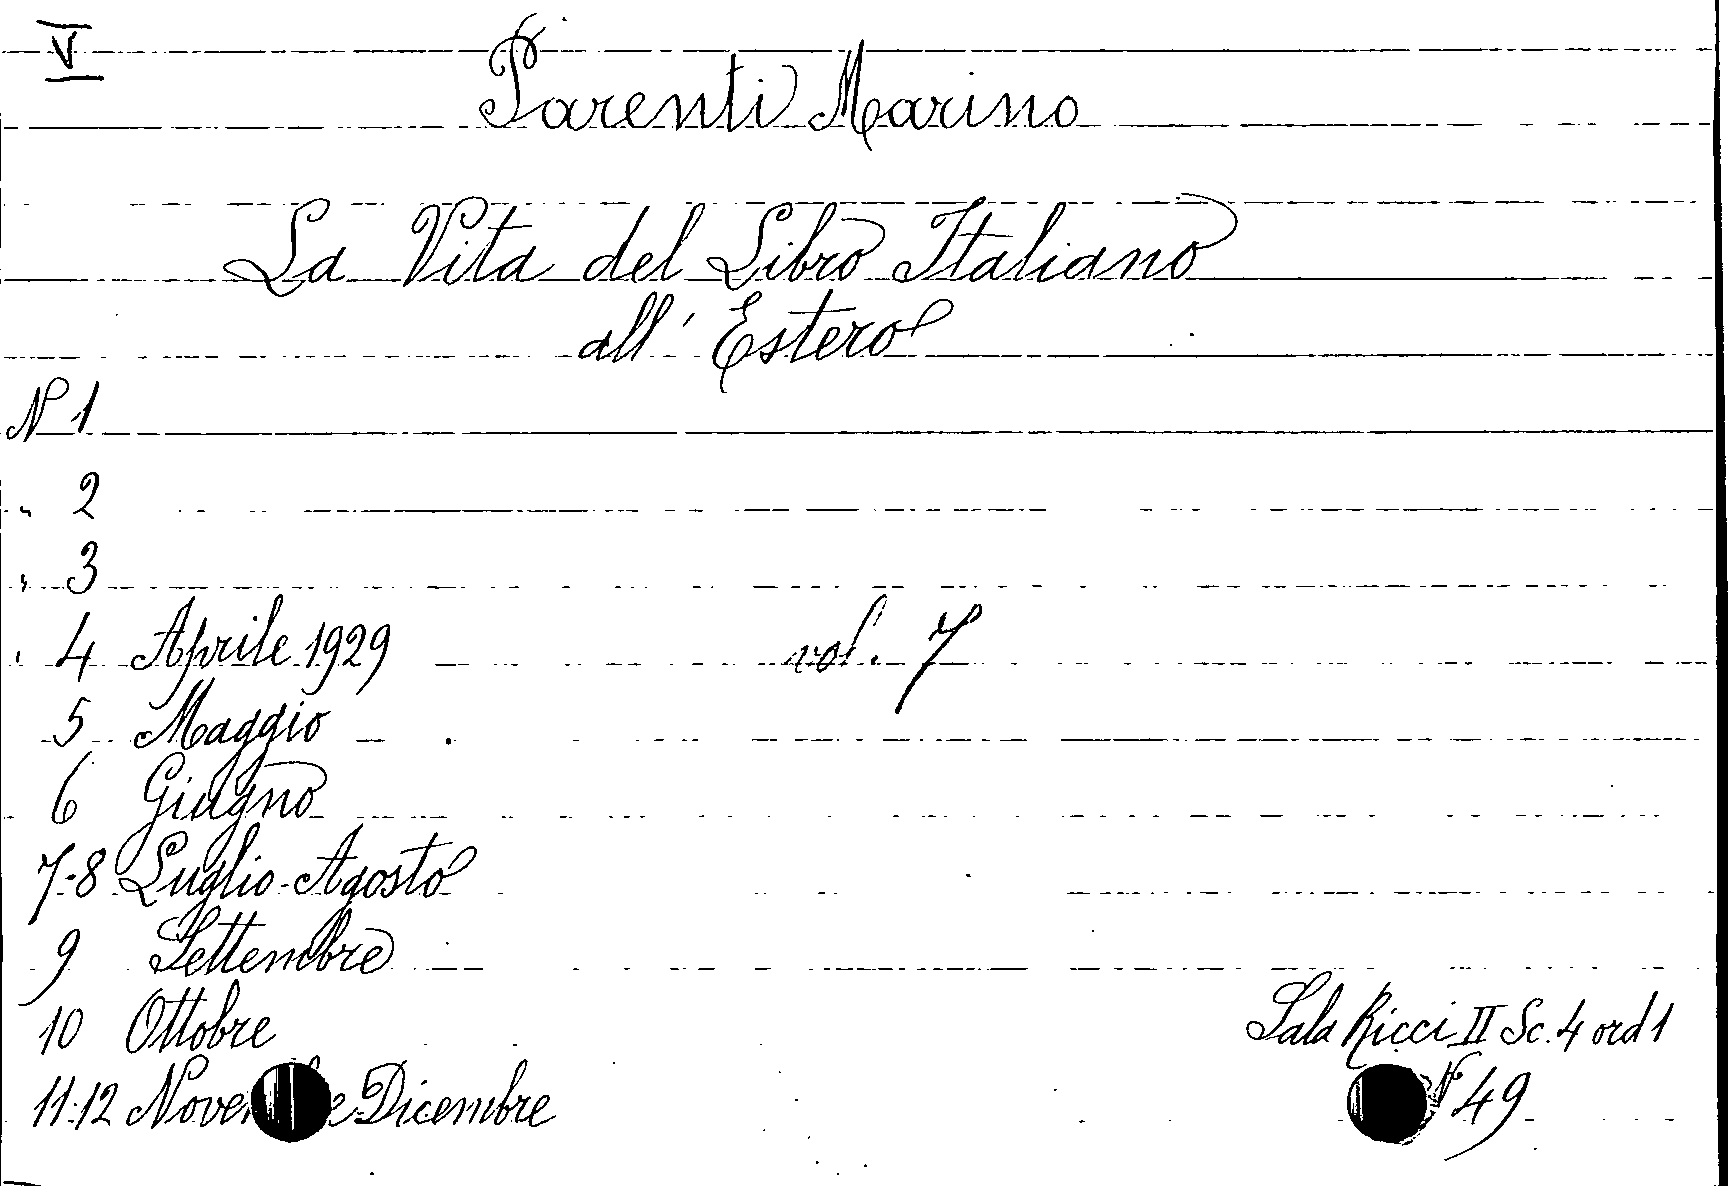 V
Parenti Marino
La Vita del Libro Italiano
all' Estero
N 1
" 2
" 3
" 4 Aprile 1929 vol. 7
5 Maggio
6 Giugno
7-8 Luglio-Agosto
9 Settembre
10 Ottobre
Sala Ricci II Sc. 4 ord 1
11-12 Dicembre
N 49